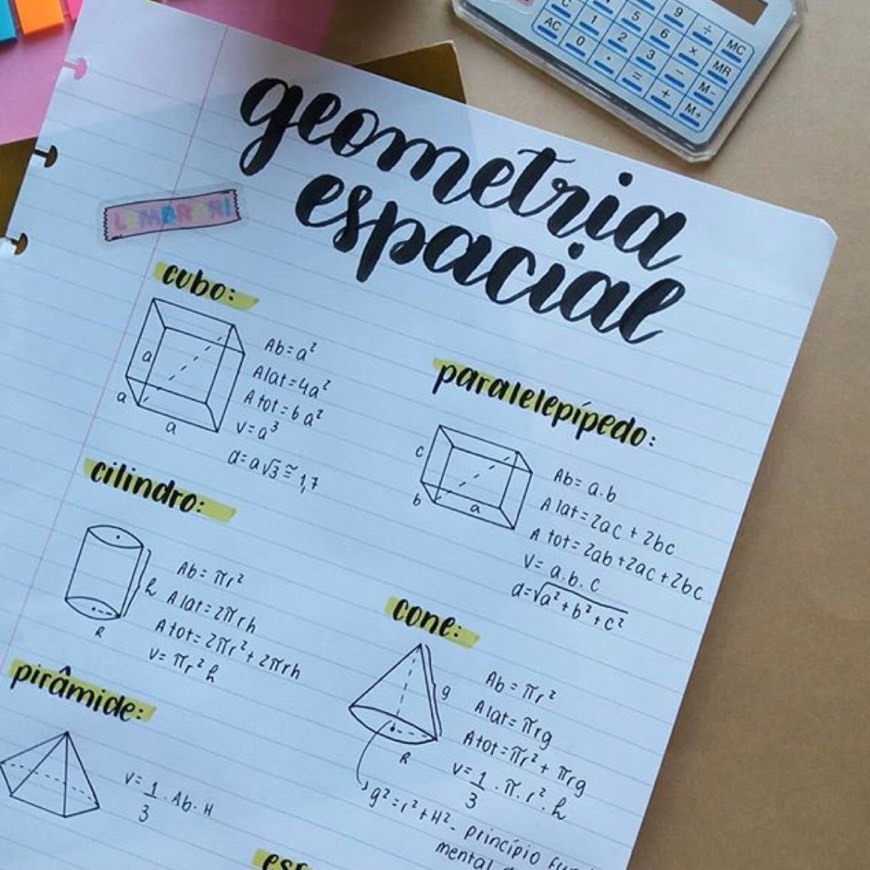 geometria
espacial
LEMBRAR!
cubo:
a
a
a
Ab=a²
Alat=4a²
Atot=6a²
V=a³
d=a√3≅1,7
paralelepípedo:
c
b
a
Ab= a.b
Alat=2ac+2bc
Atot=2ab+2ac+2bc
V= a.b.c
d=√a²+b²+c²
cilindro:
h
R
Ab= πr²
Alat=2πrh
Atot=2πr²+2πrh
V= πr²h
cone:
g
R
Ab= πr²
Alat=πrg
Atot=πr²+πrg
V=1/3.π.r².h
g²=r²+H²- princípio
mental
pirâmide:
V=1/3.Ab.H
9 ÷
5 6 × MC
C 1 2 3 − MR
AC 0 . = + M−
M+